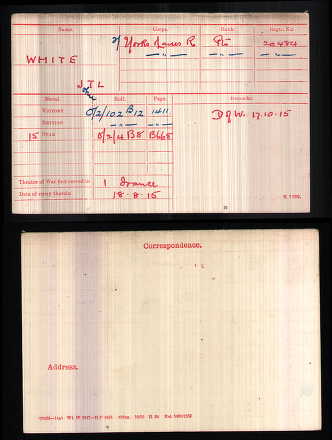 Name. Corps. Rank. Regtl. No.
WHITE
2/ Yorks Lancs R Pte 20484
— " — — " —
J T L
Medal. Roll. Page. Remarks.
VICTORY O/2/102 B12 1411 D of W. 17.10.15
BRITISH — " — — " —
15 STAR O/2/4 B8 B668
Theatre of War first served in 1 France
Date of entry therein 18-8-15
K 1380.
Correspondence.
Address.